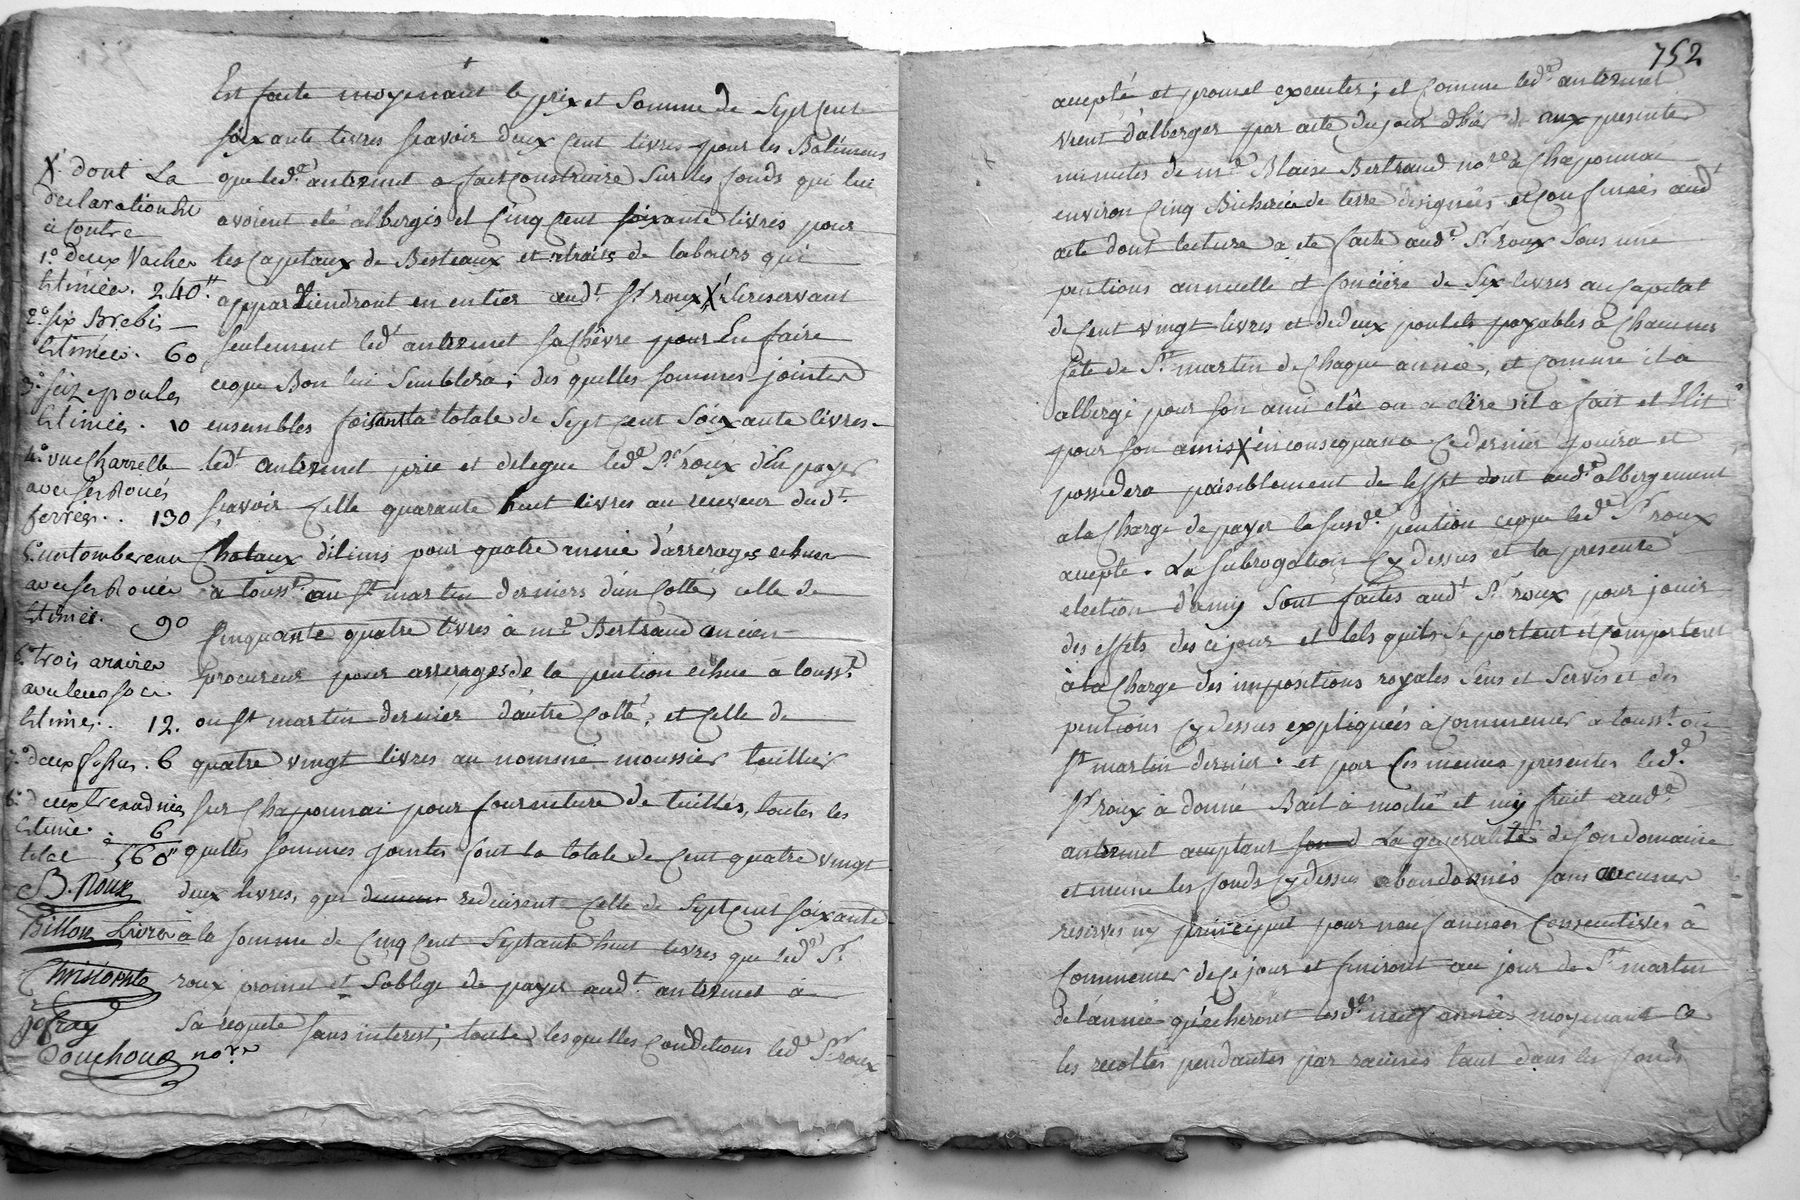 Est faite moyenant le prix et Somme de Sept Cent
soixante livres scavoir deux Cent livres pour les Batimens
que led.t antermet a fait construire Sur les fonds qui lui
avoient eté albergés et Cinq Cent soixante livres pour
les Capitaux de Bestiaux et atraits de labours qui
appartiendront en entier aud.t S.r roux X Sereservant
seulement led.t antermet sa Chêvre pour En faire
ceque Bon lui Semblera; des quelles sommes jointes
ensembles foisant la totale de Sept cent Soixante livres
led.t antermet prie et delegue led.t S.r roux d'En payer
scavoir Celle quarante huit livres au receveur dud.t
Chataux pour quatre année d'arrerages echues
a touss.t ou S.t martin derniers d'un Cotté, celle de
Cinquante quatre livres à m.e Bertrand ancien
procureur pour arrerages de la pention echue a touss.t
ou S.t martin dernier d'autre Cotté, et Celle de
quatre vingt livres au nommé moussier tuillier
sur Chaponnai pour fourniture de tuilles, toutes les
quelles sommes jointes font la totale de Cent quatre vingt
deux livres, qui reduisent Celle de Sept Cent soixante
livres à la somme de Cinq Cent Septante huit livres que led.t S.r
roux promet et S'oblige de payer aud.t antermet à
Sa requete sans interest; toutes lesquelles Conditions led.t S.r roux
X dont La
declaration Est
à Contre
1.o deux Vaches
Estimées. 240"
2.o six Brebis
Estimées. 60
3.o seize poules
Estimées. 10
4.o une Charrette
avec ses Roués
ferrées.. 130
5.o un tombereau
avec ses Roués
Estimés. 90
6.o trois araires
Estimés.. 12.
7.o deux . 6
8.o deux
Estimé. 6
total 560"
B. Roux
Billon
Christophe
Jofray
Bouchoud no.re
752
accepté et promet executer; et Comme led.t antermet
vient d'alberger par acte du jour d'hier aux presentes
minutes de m.e Blaise Bertrand no.re à Chaponnai
environ Cinq Bicherées de terre designées et Confinées aud.t
acte dont lecture a eté faite aud.t S.r roux Sous une
pentions annuelle et fonciere de Six livres au Capital
de Cent vingt livres et de deux poulets payables à Chacunes
fête de S.t martin de Chaque année, et Comme il a
albergé pour son ami elû ou a elire, il a fait et Elit
pour son amis X en consequance Ce dernier jouira et
possedera paisiblement de l'effet dont aud.t albergement
a la Charge de payer la susd.e pention ceque led.t S.r roux
accepte. La subrogation Cy dessus et la presente
election d'amy Sont faites aud.t S.r roux pour jouir
des effets des ce jour et tels quils Se portent et Comportent
à la Charge des impositions royales Cens et Servis et des
pentions Cy dessus expliquées à Commencer a touss.t ou
S.t martin dernier. et par Ces memes presentes led.t
S.r roux à donné Bail à moitié et my fruit aud.t
antermet acceptant La generalité de son domaine
et meme les fonds Cy dessus abandonnés sans aucunes
reserves ny préciput pour neuf années Consecutives à
Commencer de Ce jour et finiront au jour de S.t martin
de l'année qu'echeront lesd.tes neuf années moyenant Ce
les recoltes pendantes par racines tant dans les fonds